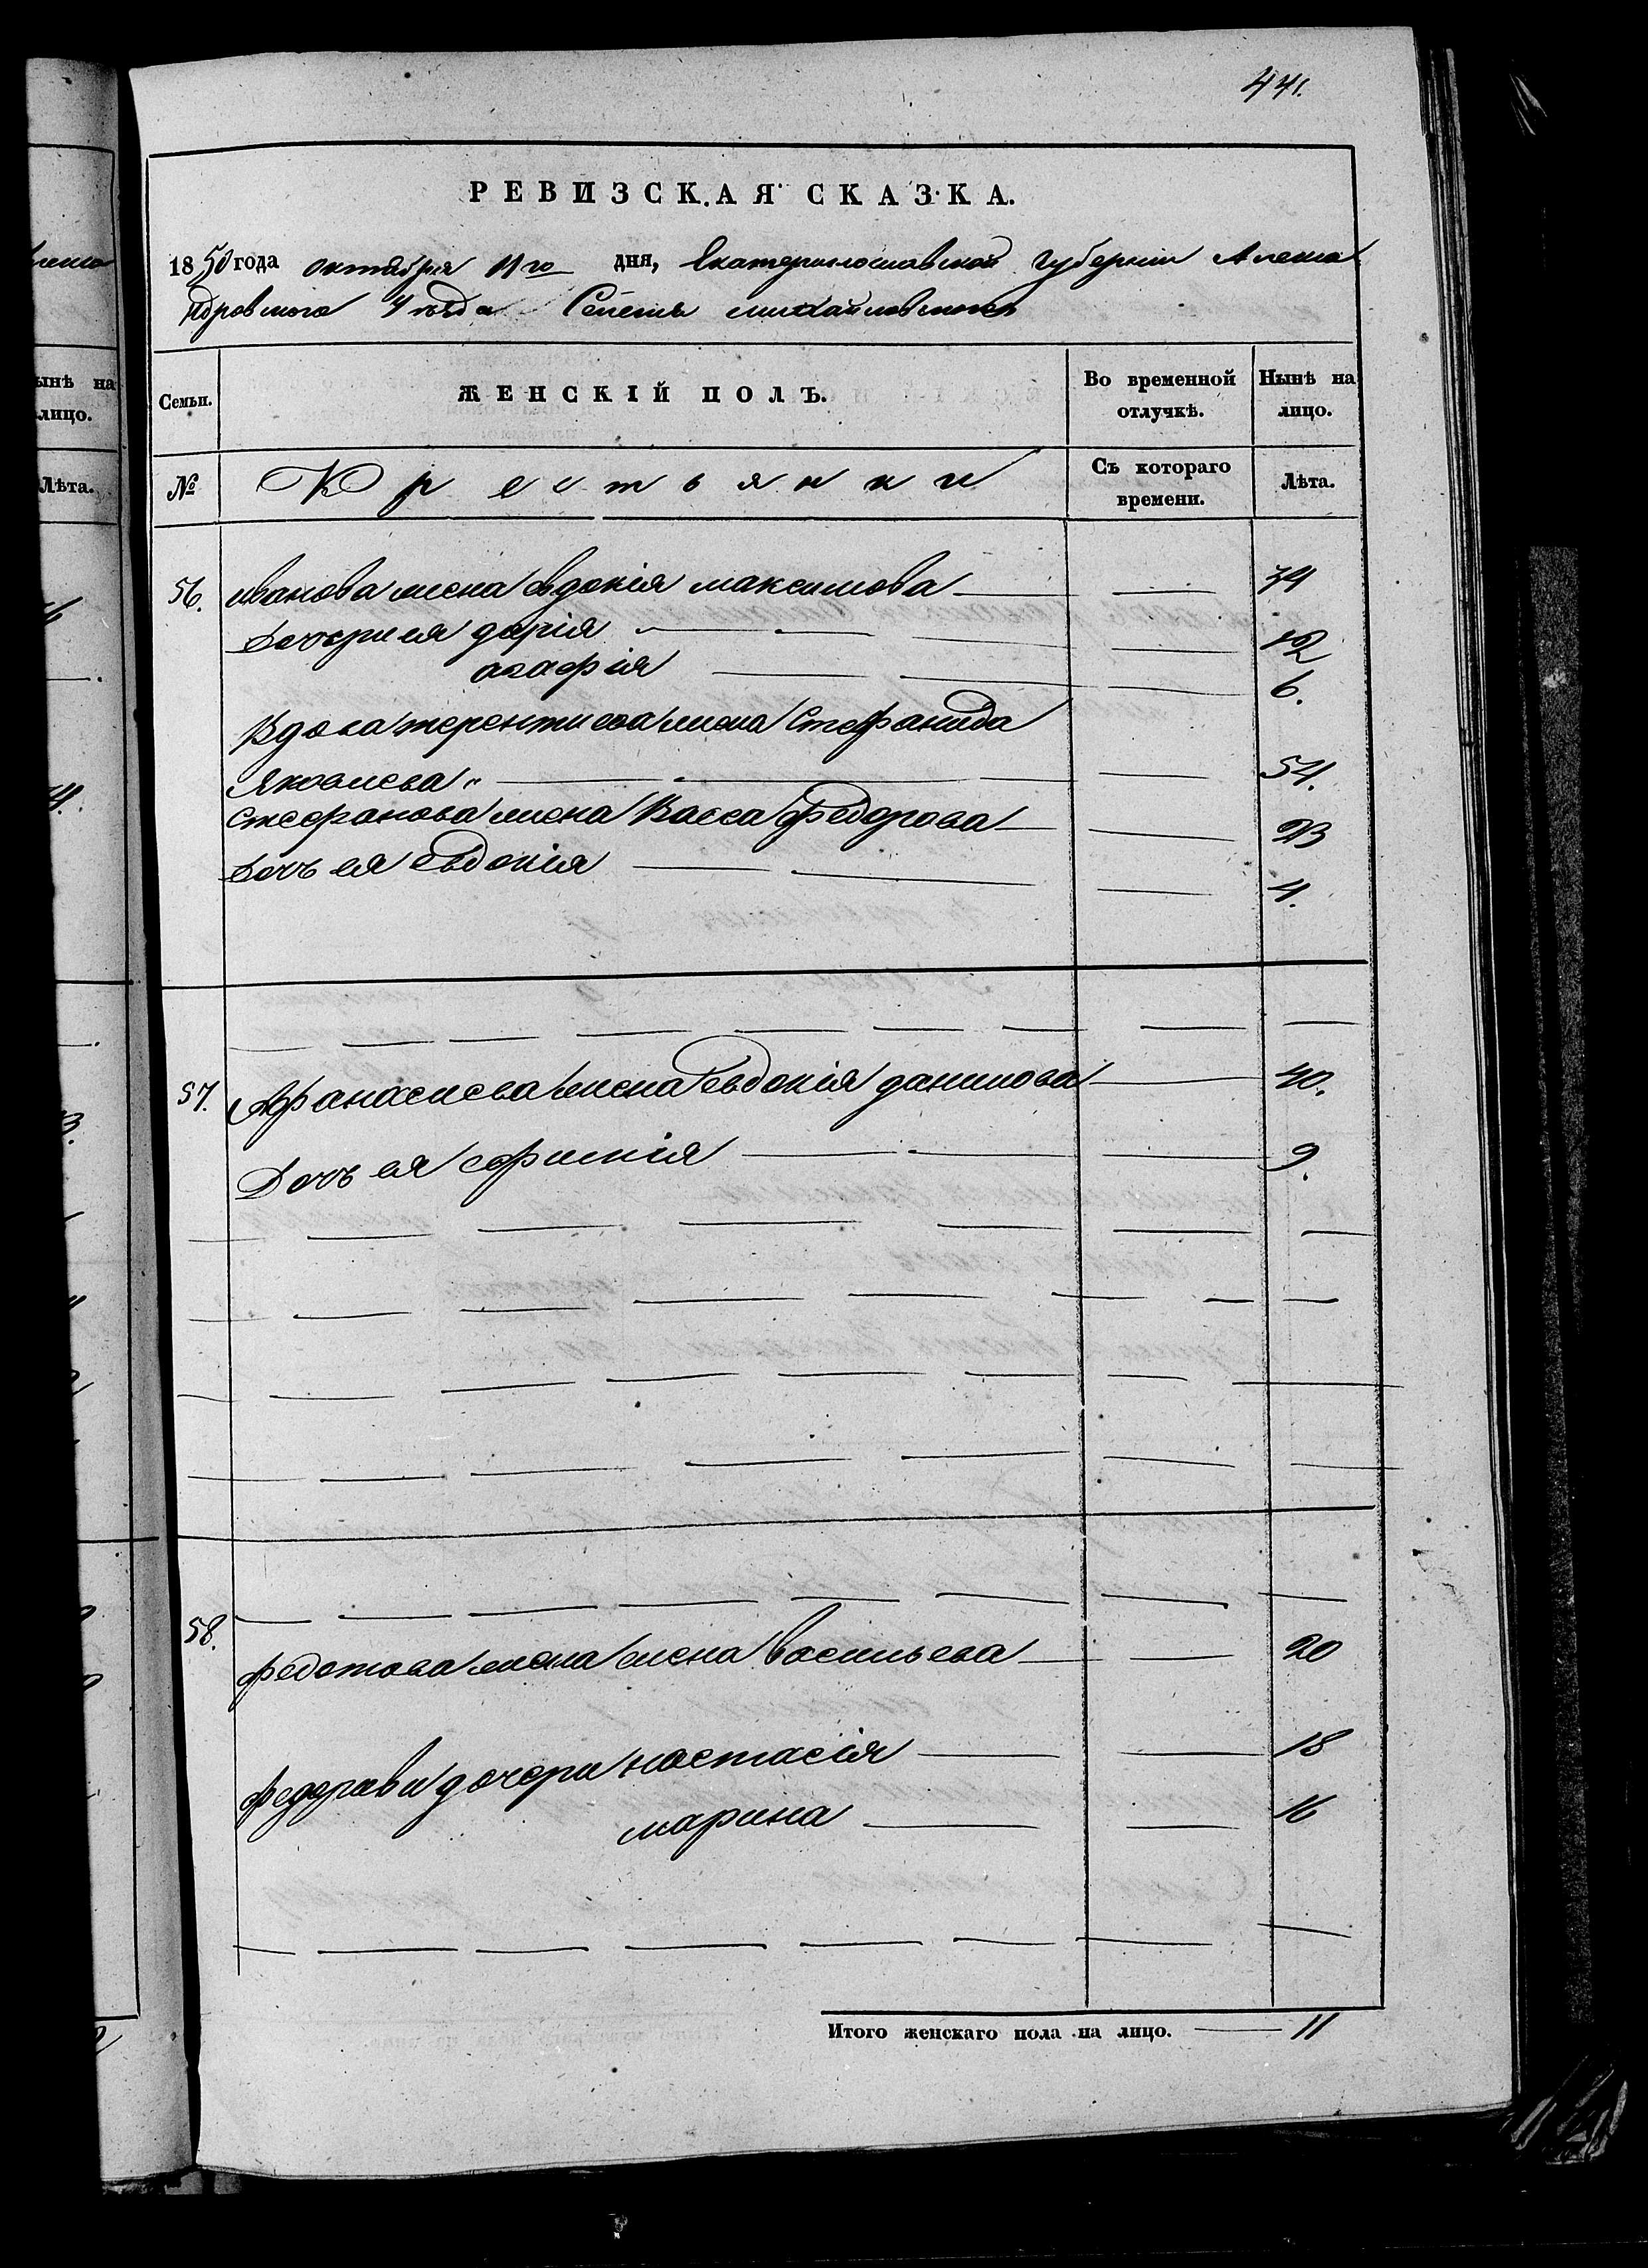 441.
РЕВИЗСКАЯ СКАЗКА.
1850 года октября 11го дня, Екатеринославской губернии Алекса
ндровского уѣзда Селения Михайловского
Семьи.
ЖЕНСКІЙ ПОЛЪ.
Во временной отлучкѣ.
Нынѣ на лицо.
№
Крестьянки
Съ котораго времени.
Лѣта.
56. иванова жена евдокія максимова 34
дочери ея дарія 12
агафія 6.
Вдова терентиева жена Стефанида
Яковлева 54.
стефанова жена Васса федорова 23
дочь ея евдокія 4.
57. Афанасиева жена евдокія данилова 40.
Дочь ея ефимія 9.
58. федотова жена елена васильева 20
федорови дочери настасія 18
марина 16
Итого женскаго пола на лицо. 11
ынѣ на
лицо.
Лѣта.